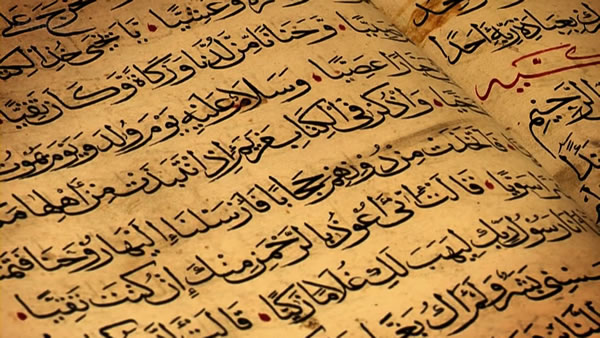 بعبادة ربه احدا
الرحيم
وعشيا يا يحيى خذ
وحنانا من لدنا وزكاة وكان تقيا
عصيا وسلام عليه يوم ولد ويوم يموت
واذكر في الكتاب مريم اذ انتبذت من اهلها
فاتخذت من دونهم حجابا فارسلنا اليها روحنا
سويا قالت اني اعوذ بالرحمن منك ان كنت تقيا
رسول ربك ليهب لك غلاما زكيا قالت
بشر ولم اك بغيا